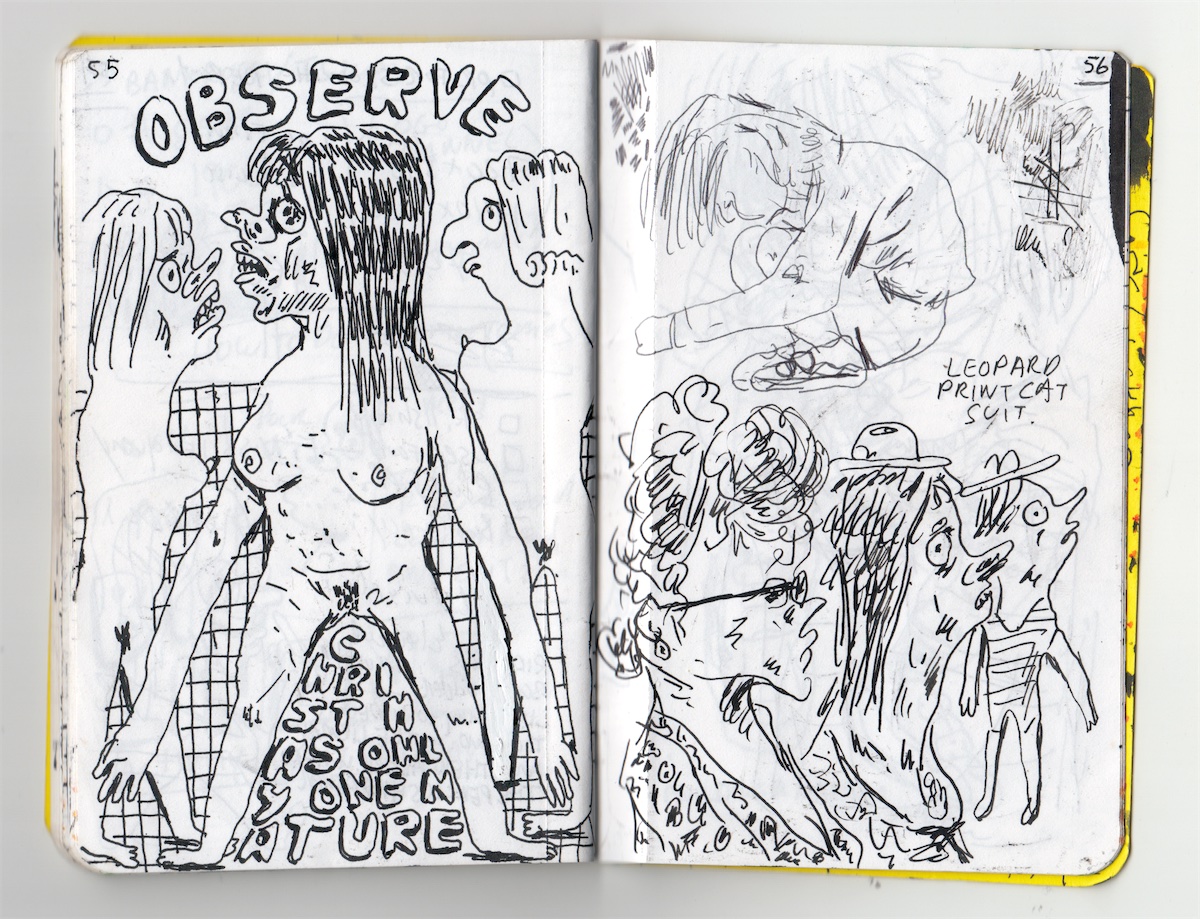 55
OBSERVE
C
HRI
ST H
AS ONL
Y ONE N
ATURE
56
LEOPARD
PRINT CAT
SUIT.